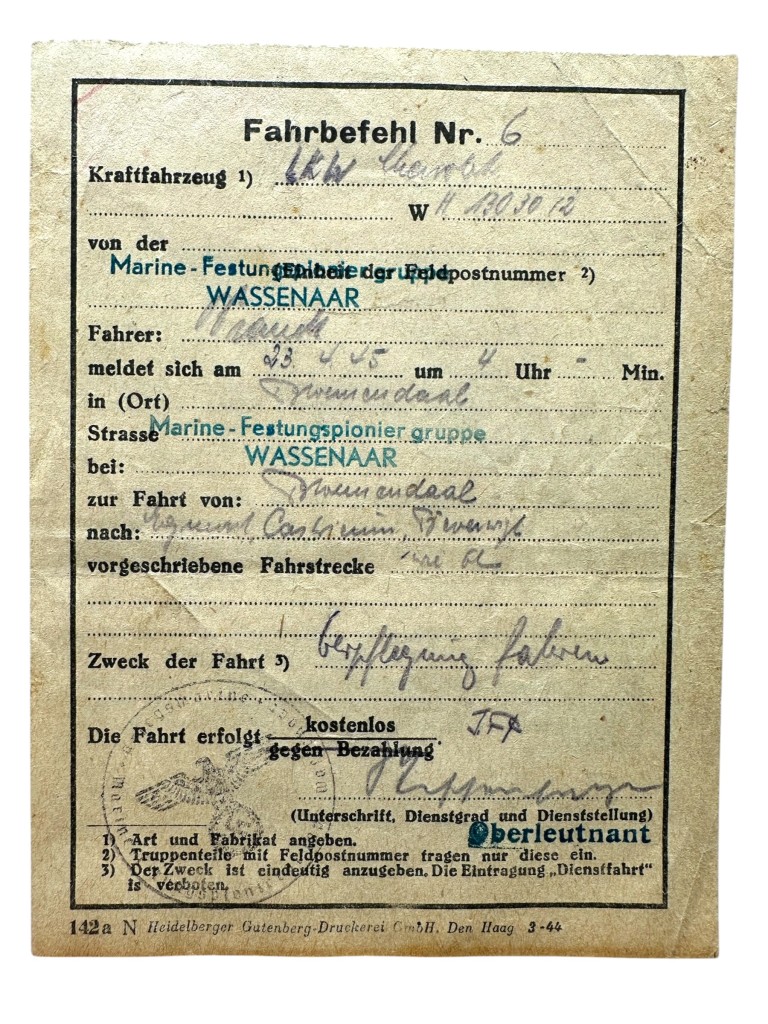 Fahrbefehl Nr. 6
Kraftfahrzeug 1) LKW
W H
von der
Marine-Festungspionier gruppe
(Einheit der Feldpostnummer 2)
WASSENAAR
Fahrer:
meldet sich am 23. 4. 45 um 4 Uhr - Min.
in (Ort) Bloemendaal
Strasse Marine-Festungspionier gruppe
WASSENAAR
bei:
zur Fahrt von: Bloemendaal
nach:
vorgeschriebene Fahrstrecke
Zweck der Fahrt 3) Verpflegung fahren
Die Fahrt erfolgt kostenlos
gegen Bezahlung
(Unterschrift, Dienstgrad und Dienststellung)
Oberleutnant
1) Art und Fabrikat angeben.
2) Truppenteile mit Feldpostnummer tragen nur diese ein.
3) Der Zweck ist eindeutig anzugeben. Die Eintragung „Dienstfahrt"
is verboten.
142a N Heidelberger Gutenberg-Druckerei GmbH, Den Haag 3-44